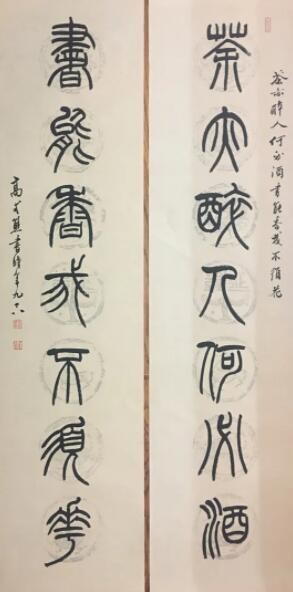 茶亦醉人何必酒書能香我不須花
茶亦醉人何必酒
書能香我不須花
高式熊書時年九十六